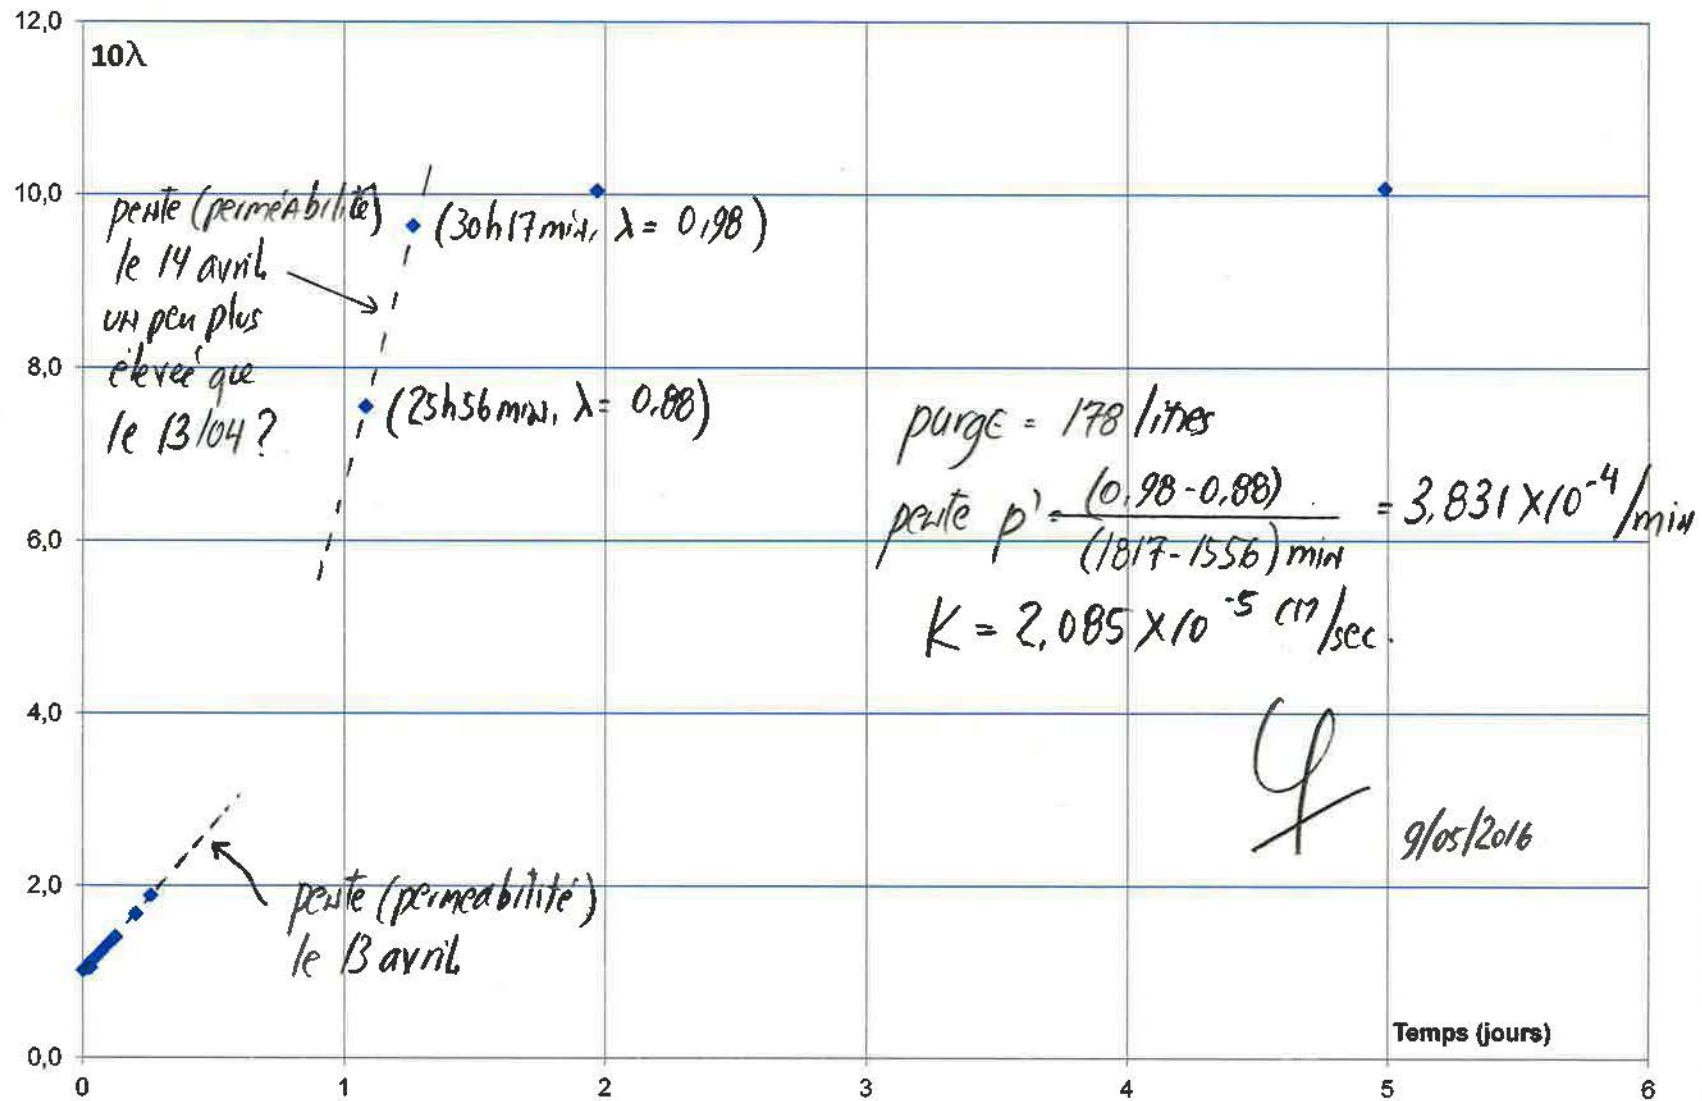 12,0
10λ
10,0
pente (perméabilité)
le 14 avril
un peu plus
élevée que
le 13/04 ?
(30h17min, λ = 0,98)
8,0
(25h56min, λ = 0,88)
purge = 178 litres
pente p' = (0,98-0,88) / (1817-1556) min = 3,831 X10^-4 /min
K = 2,085 X10^-5 cm/sec.
6,0
4,0
9/05/2016
2,0
pente (permeabilité)
le 13 avril
Temps (jours)
0,0
0 1 2 3 4 5 6